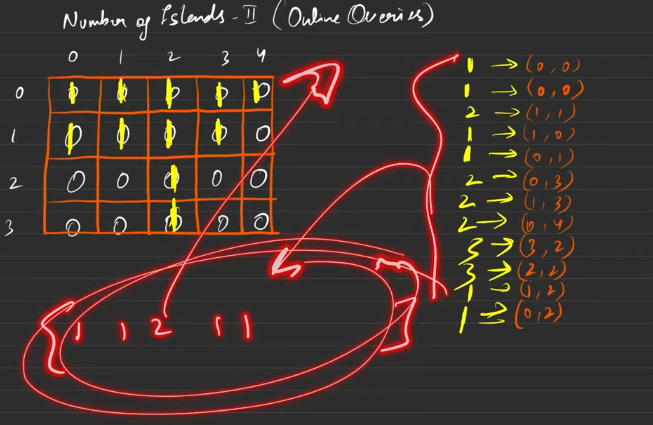 Number of Islands - II (Online Queries)
0 1 2 3 4
0 0 0 0 0 0
1 0 0 0 0 0
2 0 0 0 0 0
3 0 0 0 0 0
1 → (0,0)
1 → (0,0)
2 → (1,1)
1 → (1,0)
1 → (0,1)
2 → (0,3)
2 → (1,3)
2 → (0,4)
3 → (3,2)
3 → (2,2)
1 → (1,2)
1 → (0,2)
[ 1 1 2 1 1 ]